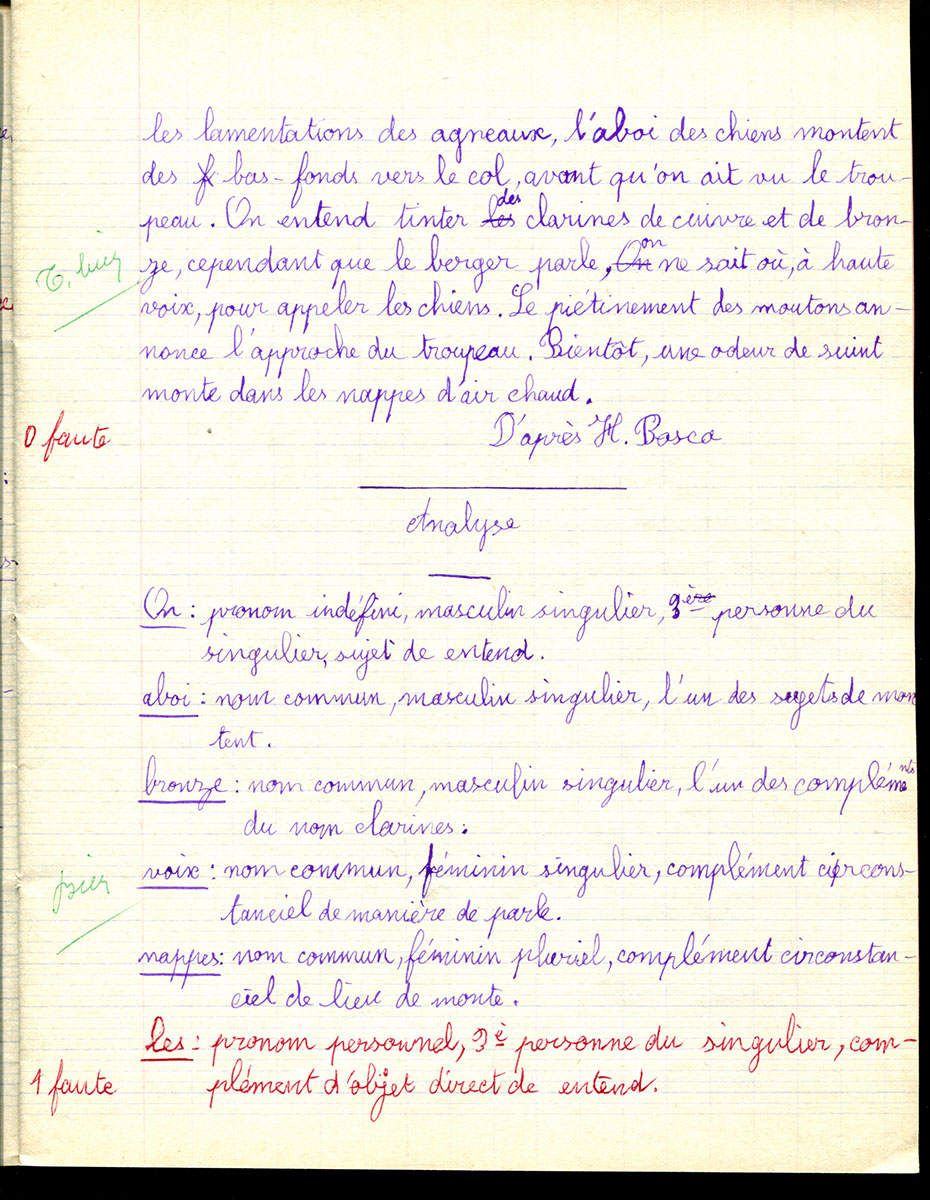 les lamentations des agneaux, l'aboi des chiens montent
des bas-fonds vers le col, avant qu'on ait vu le trou-
peau. On entend tinter les des clarines de cuivre et de bron-
T. bien
ze, cependant que le berger parle, On on ne sait où, à haute
voix, pour appeler les chiens. Le piétinement des moutons an-
nonce l'approche du troupeau. Bientôt, une odeur de suint
monte dans les nappes d'air chaud.
0 faute
D'après H. Bosco
Analyse
On : pronom indéfini, masculin singulier, 3ère personne du
singulier, sujet de entend.
aboi : nom commun, masculin singulier, l'un des sujets de mon
tent.
bronze : nom commun, masculin singulier, l'un des compléments
du nom clarines.
voix : nom commun, féminin singulier, complément circons-
bien
tanciel de manière de parle.
nappes : nom commun, féminin pluriel, complément circonstan-
ciel de lieu de monte.
les : pronom personnel, 3è personne du singulier, com-
1 faute
plément d'objet direct de entend.